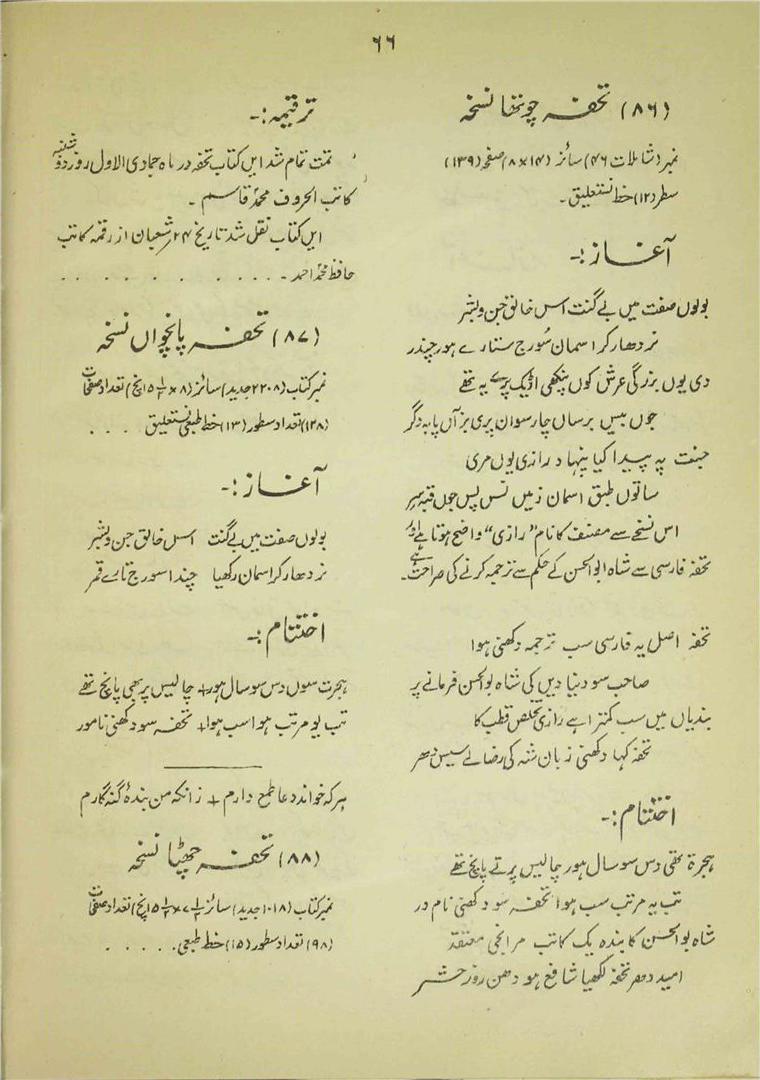 ۶۶
(۸۶) تحفہ چوتھا نسخہ
نمبر (شاملات ۴۶) سائز (۱۴×۸) صفحہ (۱۳۹)
سطر (۱۲) خط نستعلیق۔
آغاز:۔
بولوں صفت میں بے گنت اس خالق جن و بشر
نردھار کر اسمان سورج ستارے ہور چندر
دی یوں بزرگی عرش کوں پنکھی اڑیک پرے یہ تھے
جوں بیس برساں چار سو ان پری بز آں پایہ دگر
جنت پہ پیدا کیا پنہا د رازی یوں مری
ساتوں طبق اسمان زمیں تس پس جوں قبہ سپر
اس نسخے سے مصنف کا نام "رازی" واضح ہوتا ہے اور
تحفہ فارسی سے شاہ ابوالحسن کے حکم سے ترجمہ کرنے کی صراحت ہے۔
تحفہ اصل یہ فارسی سب ترجمہ دکھنی ہوا
صاحب سو دنیا دیں کی شاہ بوالحسن فرمانے پر
بندیاں میں سب کمتر اہے رازی تخلص قطب کا
تحفہ کہا دکھنی زباں شہ کی رضا لے سیس دھر
اختتام:۔
ہجرۃ تھی دس سو سال ہور چالیس پرتے پانچ تھے
تب یہ مرتب سب ہوا تحفہ سو دکھنی نام ور
شاہ بوالحسن کا بندہ یک کاتب معتقد
امید دھر تحفہ لکھیا شافع ہو دھن روز حشر
ترقیمہ:۔
تمت تمام شد ایں کتاب تحفہ در ماہ جمادی الاول روز دو شنبہ
کاتب الحروف محمد قاسم۔
ایں کتاب نقل شد تاریخ ۲۴ شعبان از رقمہ کاتب
حافظ محمد احمد۔ . . . . . . . . . .
(۸۷) تحفہ پانچواں نسخہ
نمبر کتاب (۲۲۰۸ جدید) سائز (۸×۵½ انچ) تعداد صفحات
(۱۲۸) تعداد سطور (۱۳) خط طبعی نستعلیق . . .
آغاز:۔
بولوں صفت میں بے گنت اس خالق جن و بشر
نردھار کر اسمان رکھیا چندا سورج تارے قمر
اختتام:۔
ہجرت سوں دس سو سال ہور + چالیس پر بھی پانچ تھے
تب یو مرتب ہوا سب ہوا + تحفہ سو دکھنی نامور
ہر کہ خواند دعا طمع دارم + زانکہ من بندۂ گنہ گارم
(۸۸) تحفہ چھٹا نسخہ
نمبر کتاب (۱۰۱۸ جدید) سائز (۷½×۵½ انچ) تعداد صفحات
(۹۸) تعداد سطور (۱۵) خط طبعی . . . . .